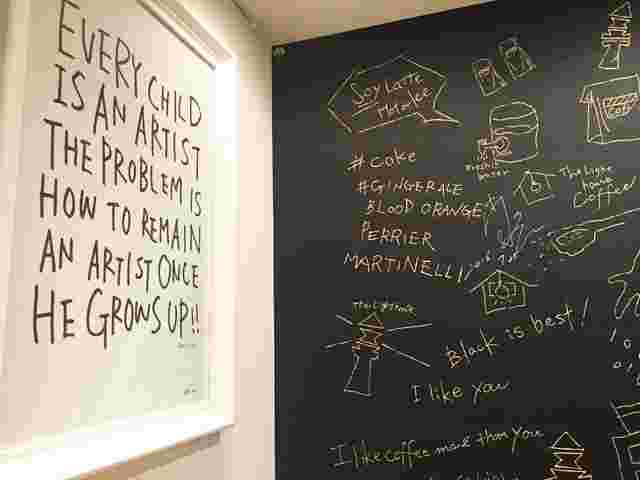 EVERY CHILD
IS AN ARTIST
THE PROBLEM IS
HOW TO REMAIN
AN ARTIST ONCE
HE GROWS UP!!
Soy Latte
# coke
#GINGERALE
BLOOD ORANGE
PERRIER
MARTINELLI
The Light
house
Coffee!
Black is best!
I like you
I like coffee more than you